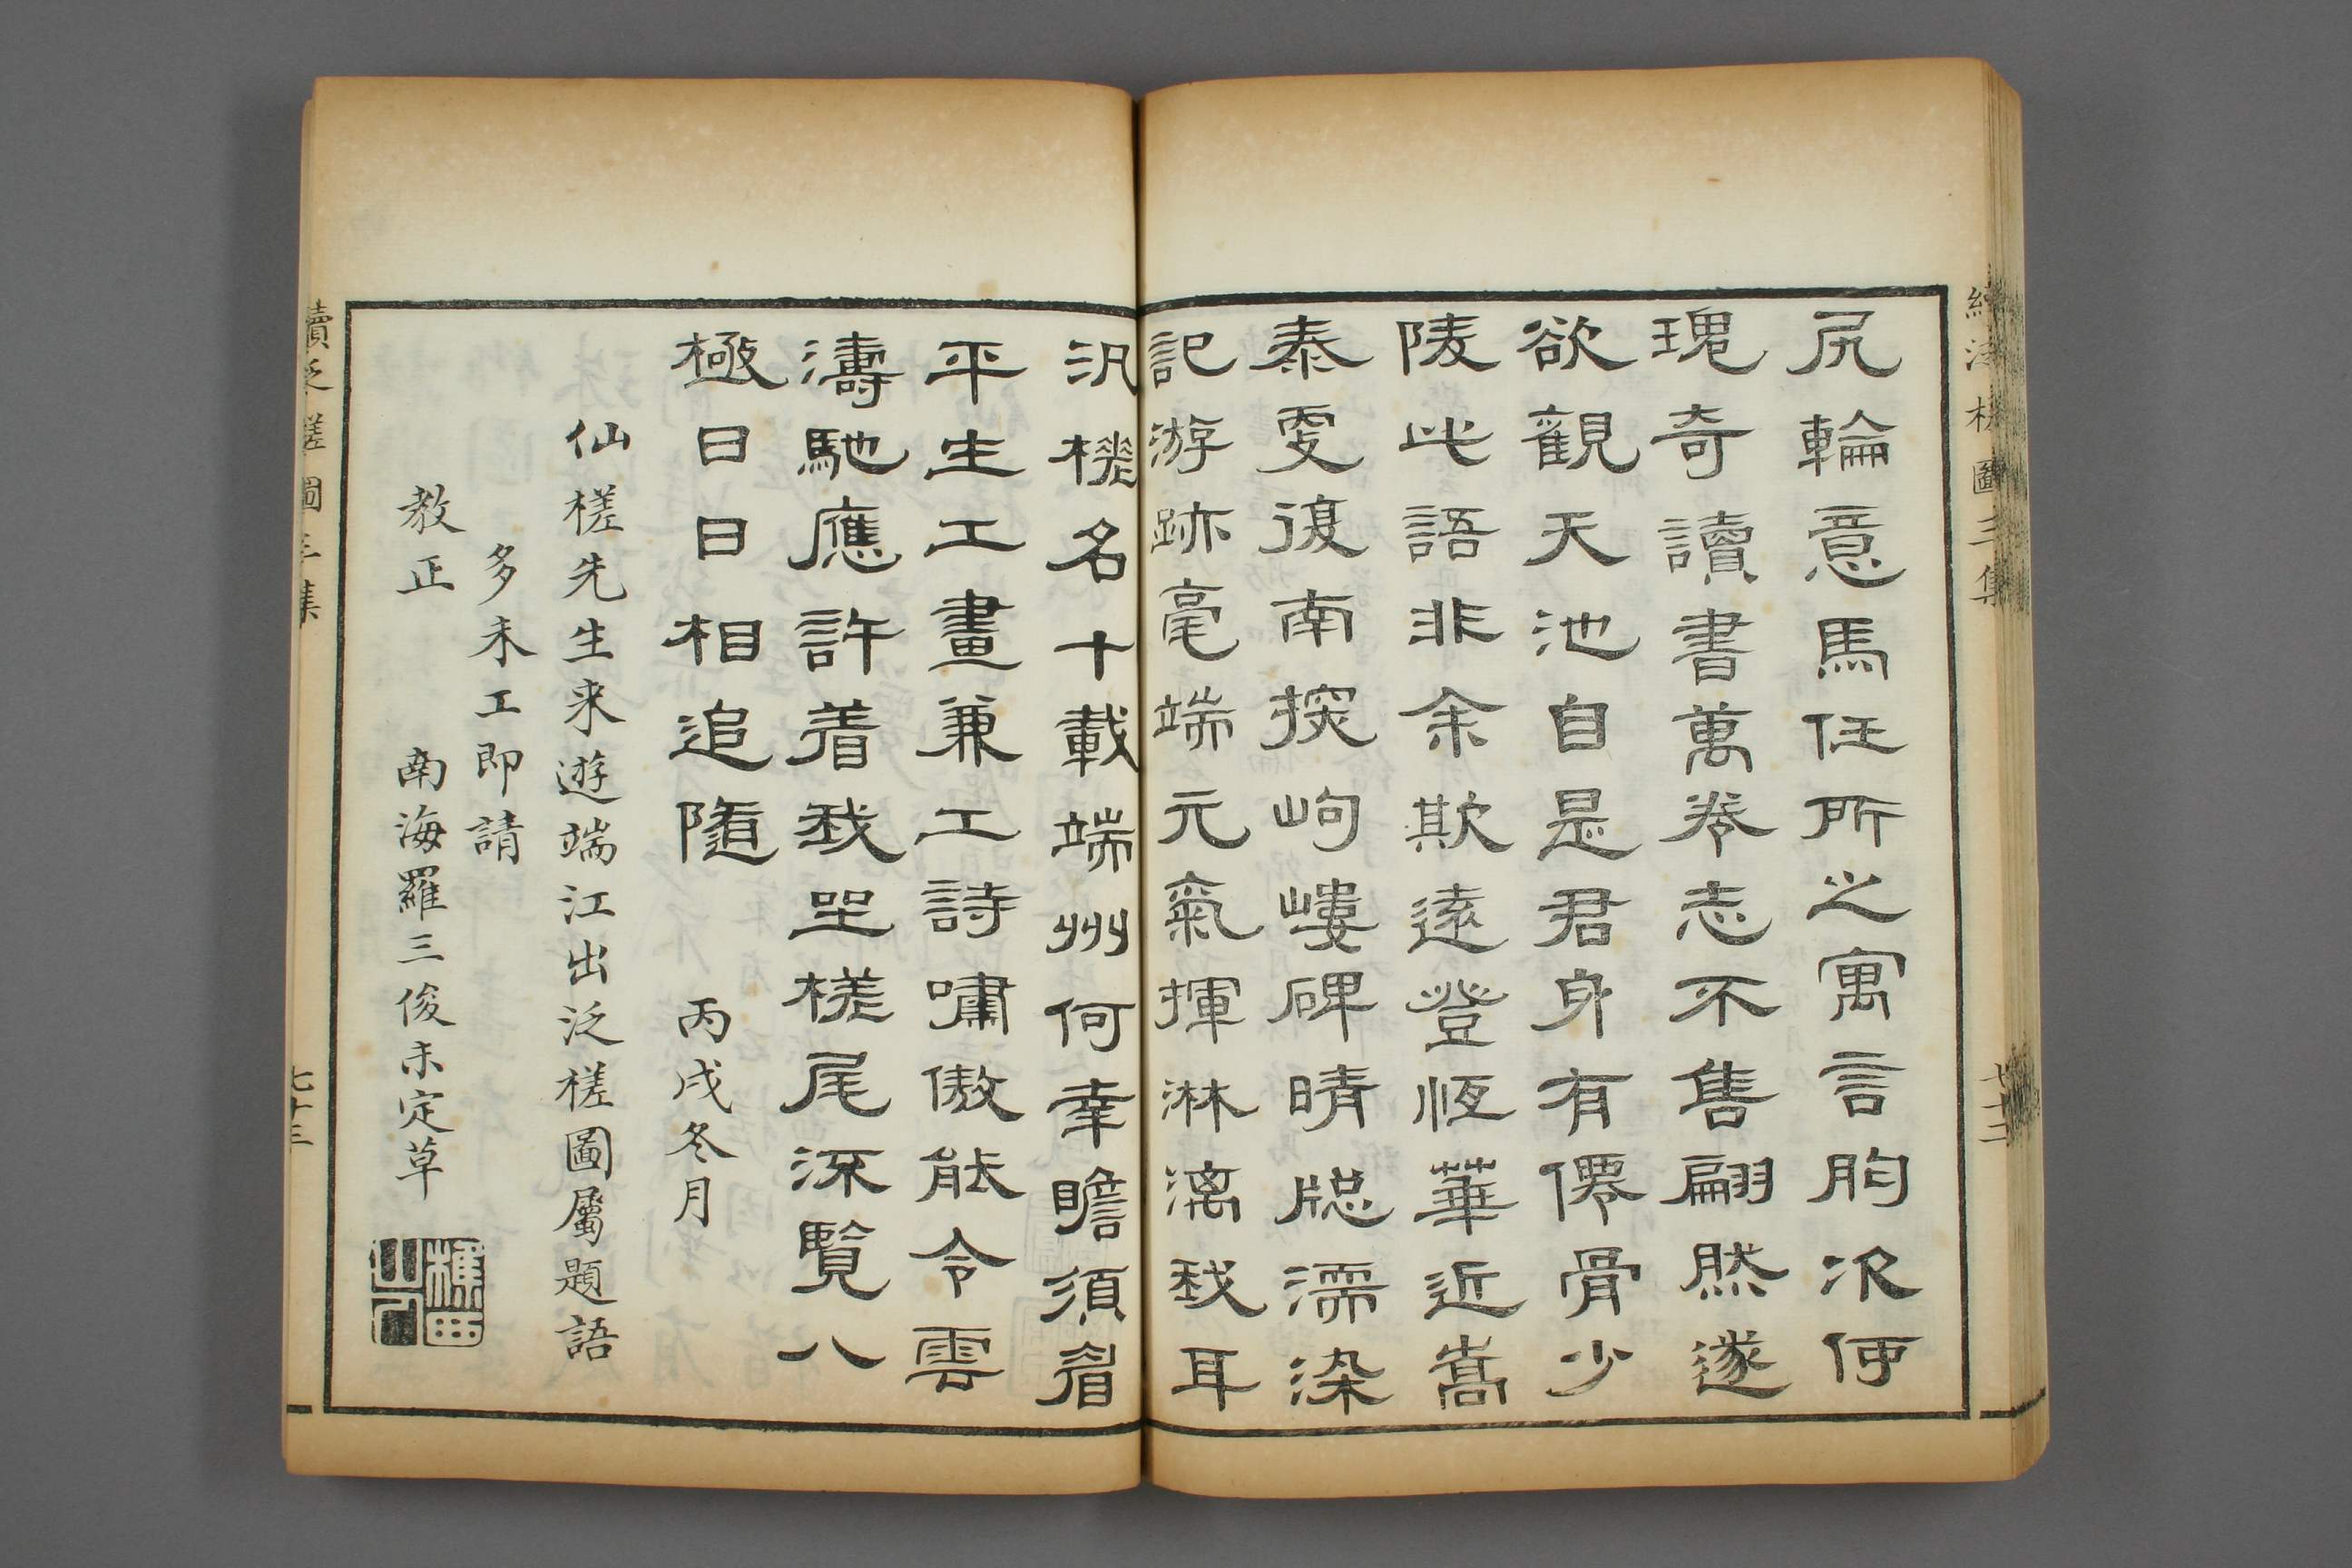 續泛槎圖三集
尻輪意馬任所之寓言胸次何
瑰奇讀書萬卷志不售翩然遂
欲觀天池自是君身有僊骨少
陵此語非余欺遠登恆華近嵩
泰更復南探岣嶁碑晴牕濡染
記游跡毫端元氣揮淋漓我耳
汎槎名十載端州何幸瞻須眉
平生工畫兼工詩嘯傲能令雲
濤馳應許着我坐槎尾深覽八
極日日相追隨
丙戌冬月
仙槎先生来遊端江出泛槎圖屬題語
多未工即請
教正
南海羅三俊未定草
續泛槎圖三集
七十三